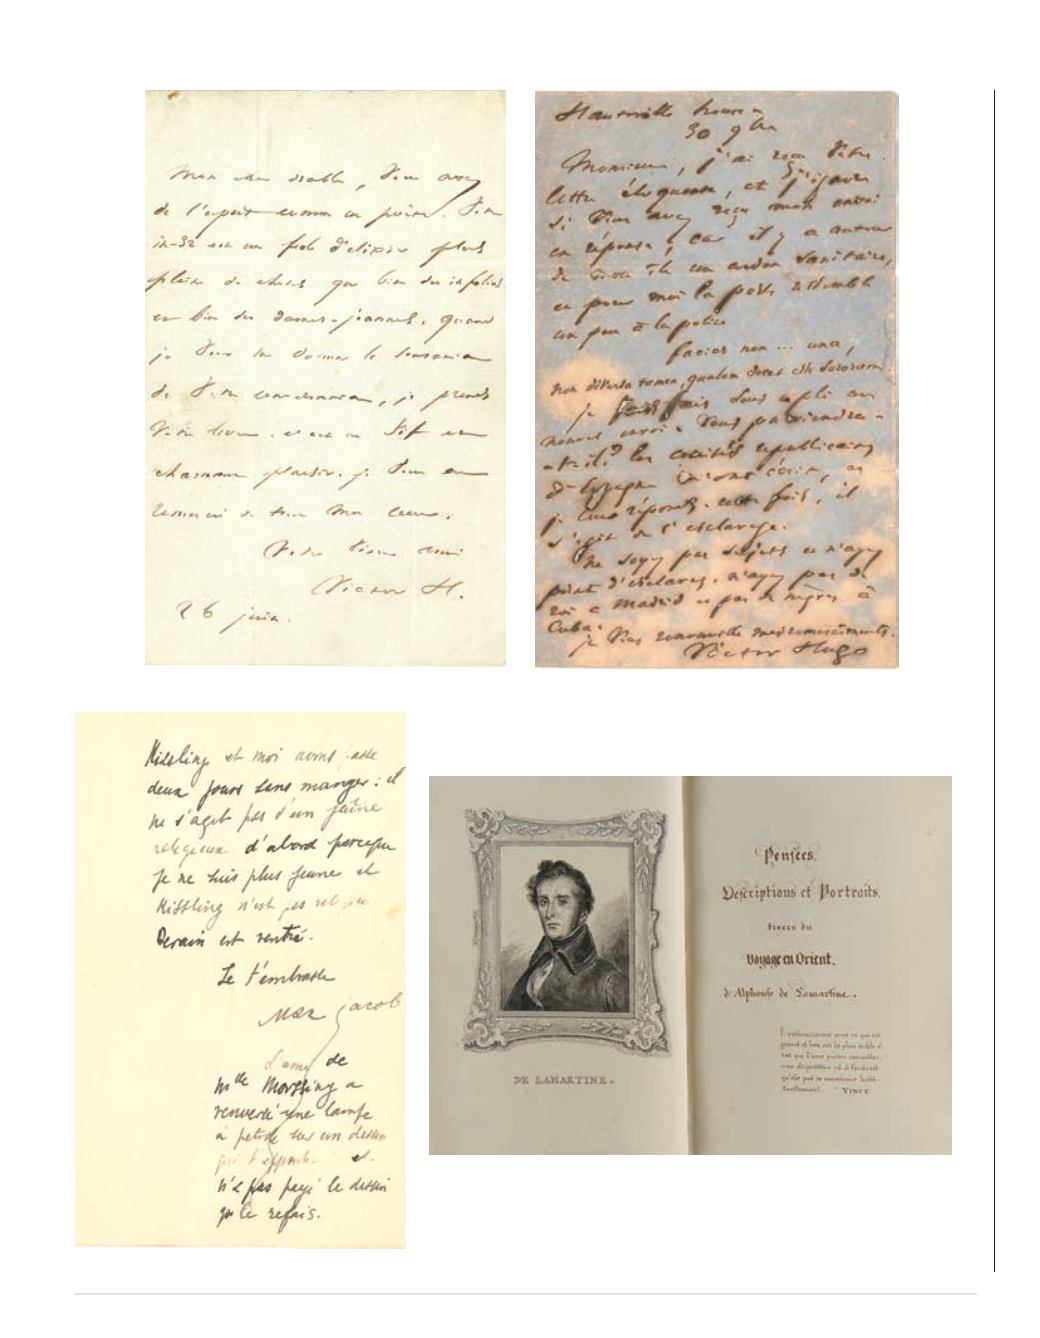 Mon cher diable, vous avez
de l'esprit comme un poëme. Votre
in-32 est un fiole d'elixir plus
pleine de choses que bien des infolios
et bien des dames-jeannes. Quand
je veux me donner le
de votre conversation, je prends
votre livre. et c'est un vif et
charmant plaisir. je vous en
remercie de tout mon coeur.
Votre vieux ami
Victor H.
26 juin.
Hauteville house
30 9bre
Monsieur, j'ai reçu votre
lettre éloquente, et j'ignore
si vous avez reçu mon envoi
en réponse, car il y a autour
de vous un cordon sanitaire,
et pour moi la poste ressemble
un peu à la police
facies non ... una,
non diversa tamen, qualem decet esse sororum.
je fais sous ce pli un
nouvel envoi. Vous parviendra-
t-il? les comités républicains
d'Espagne m'ont écrit, et
je leur réponds. cette fois, il
s'agit de l'esclavage.
ne soyez pas sujets et n'ayez
point d'esclaves. n'ayez pas de
roi à Madrid et pas de nègres à
Cuba.
je vous renouvelle mes remerciments.
Victor Hugo
Kissling et moi avons passé
deux jours sans manger : il
ne s'agit pas d'un jeûne
religieux d'abord parceque
je ne suis plus jeune et
Kissling n'est pas
Derain est rentré.
Je t'embrasse
Max Jacob
L'ami de
Mlle a
renversé une lampe
à petrole sur un dessin
qui et
n'a pas payé le dessin
je le refais.
DE LAMARTINE.
Pensées,
Descriptions et Portraits,
tirées du
Voyage en Orient,
d'Alphonse de Lamartine.
L'enthousiasme pour ce qui est
grand et bon, est le plus noble é-
tat que l'ame puisse connaître;
une disposition où il faudrait
qu'elle pût se maintenir habi-
tuellement. VINET